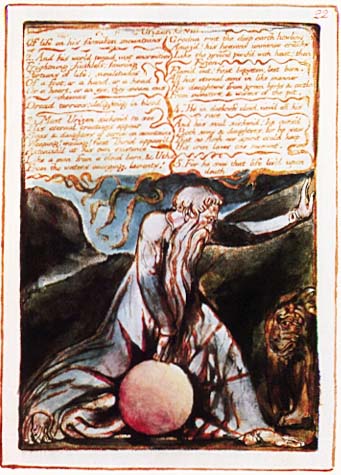 22
Urizen
Of life on his forsaken mountains
2. And his world teemd vast enormities
Frightning; faithless; fawning
Portions of life; similitudes
Of a foot, or a hand, or a head
Or a heart, or an eye, they swam mis-
-chevous
Dread terrors! delighting in blood
3. Most Urizen sicken'd to see
His eternal creations appear
Sons & daughters of sorrow on mountains
Weeping! wailing! first Thiriel appear'd
Astonish'd at his own existence
Like a man from a cloud born, & Utha
From the waters emerging, laments!
Grodna rent the deep earth howling
Amaz'd! his heavens immense cracks
Like the ground parch'd with heat; then
Fuzon
Flam'd out! first begotten, last born.
All his eternal sons in like manner
His daughters from green herbs & cattle
From monsters, & worms of the pit.
4. He in darkness clos'd, view'd all his
race
And his soul sicken'd! he curs'd
Both sons & daughters; for he saw
That no flesh nor spirit could keep
His iron laws one moment.
5. For he saw that life liv'd upon
death